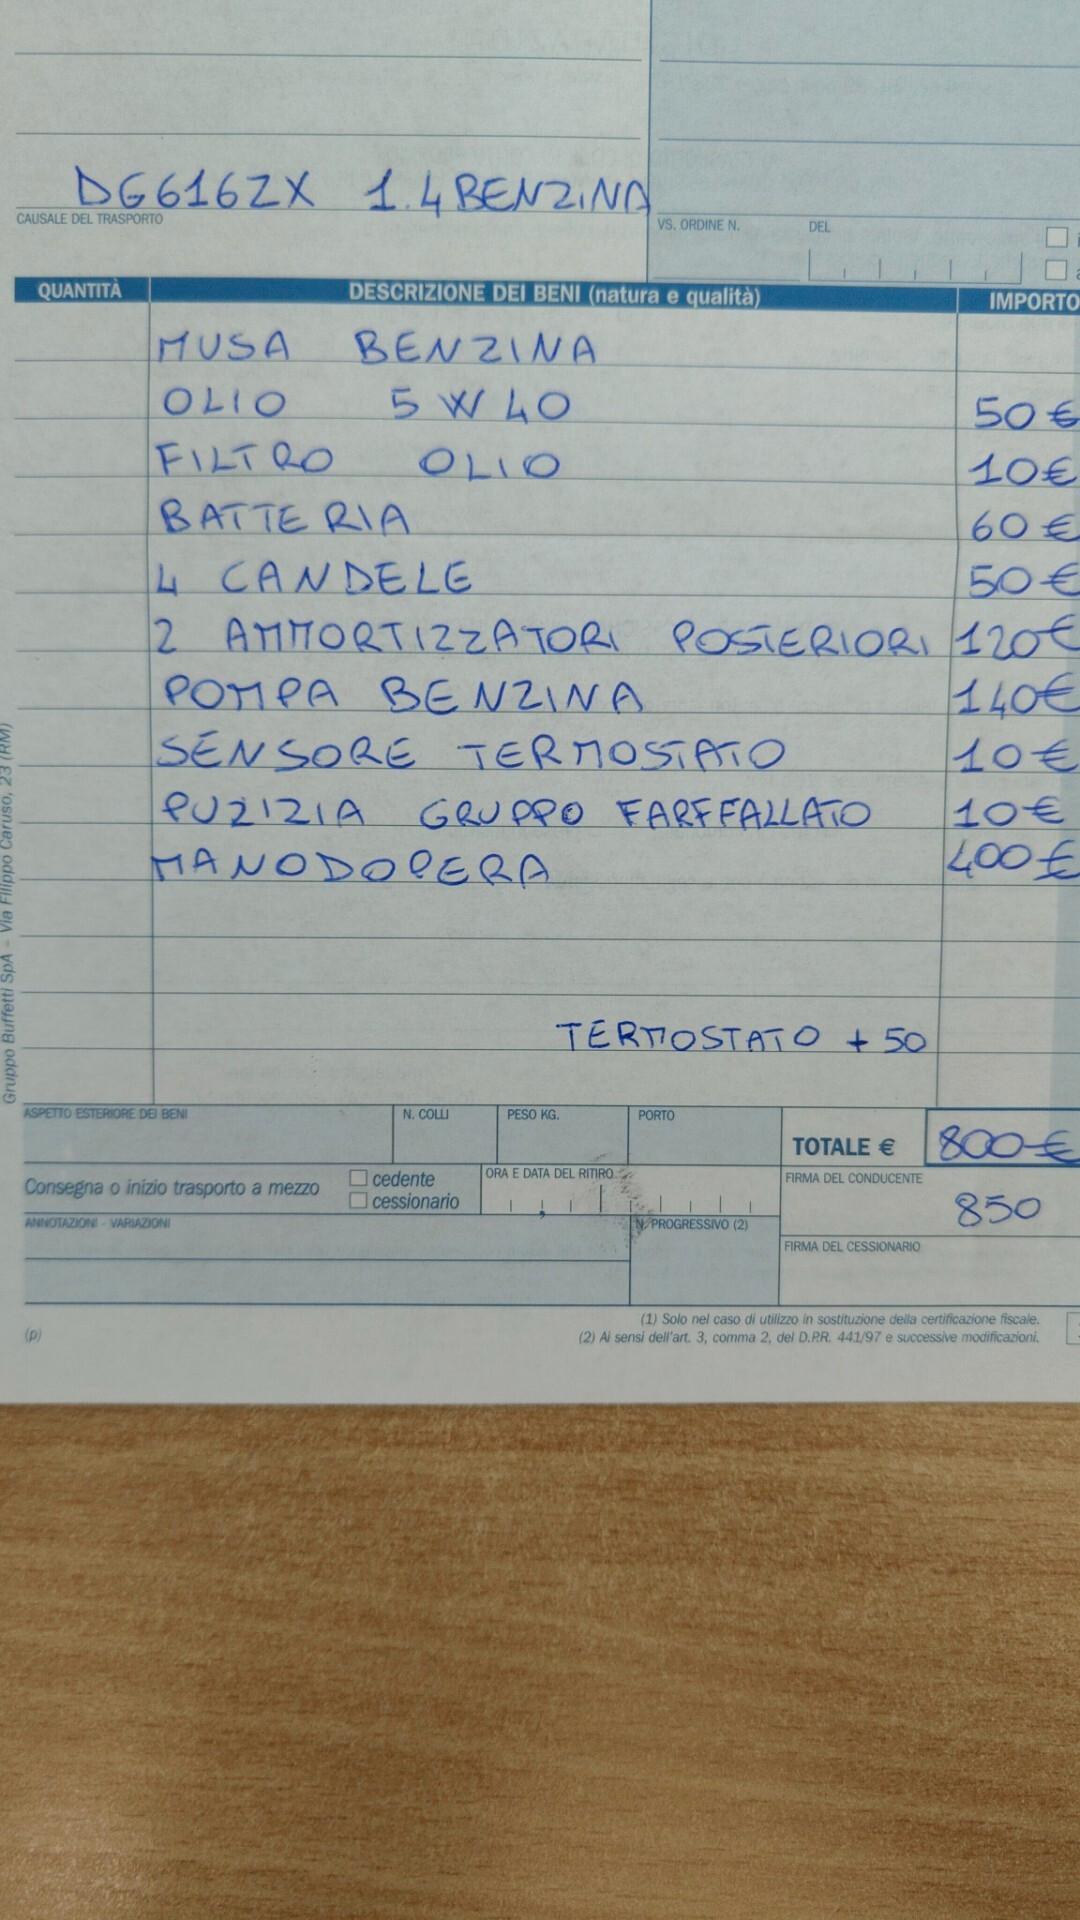 DG616ZX 1.4 BENZINA
CAUSALE DEL TRASPORTO
VS. ORDINE N. DEL
QUANTITÀ DESCRIZIONE DEI BENI (natura e qualità) IMPORTO
MUSA BENZINA
OLIO 5W40 50€
FILTRO OLIO 10€
BATTERIA 60€
4 CANDELE 50€
2 AMMORTIZZATORI POSTERIORI 120€
POMPA BENZINA 140€
SENSORE TERMOSTATO 10€
PUZIZIA GRUPPO FARFFALLATO 10€
MANODOPERA 400€
TERMOSTATO + 50
Gruppo Buffetti SpA - Via Filippo Caruso, 23 (RM)
ASPETTO ESTERIORE DEI BENI N. COLLI PESO KG. PORTO
TOTALE € 800€
Consegna o inizio trasporto a mezzo cedente
cessionario
ORA E DATA DEL RITIRO
FIRMA DEL CONDUCENTE
850
ANNOTAZIONI - VARIAZIONI
N. PROGRESSIVO (2)
FIRMA DEL CESSIONARIO
(1) Solo nel caso di utilizzo in sostituzione della certificazione fiscale.
(p) (2) Ai sensi dell'art. 3, comma 2, del D.P.R. 441/97 e successive modificazioni.